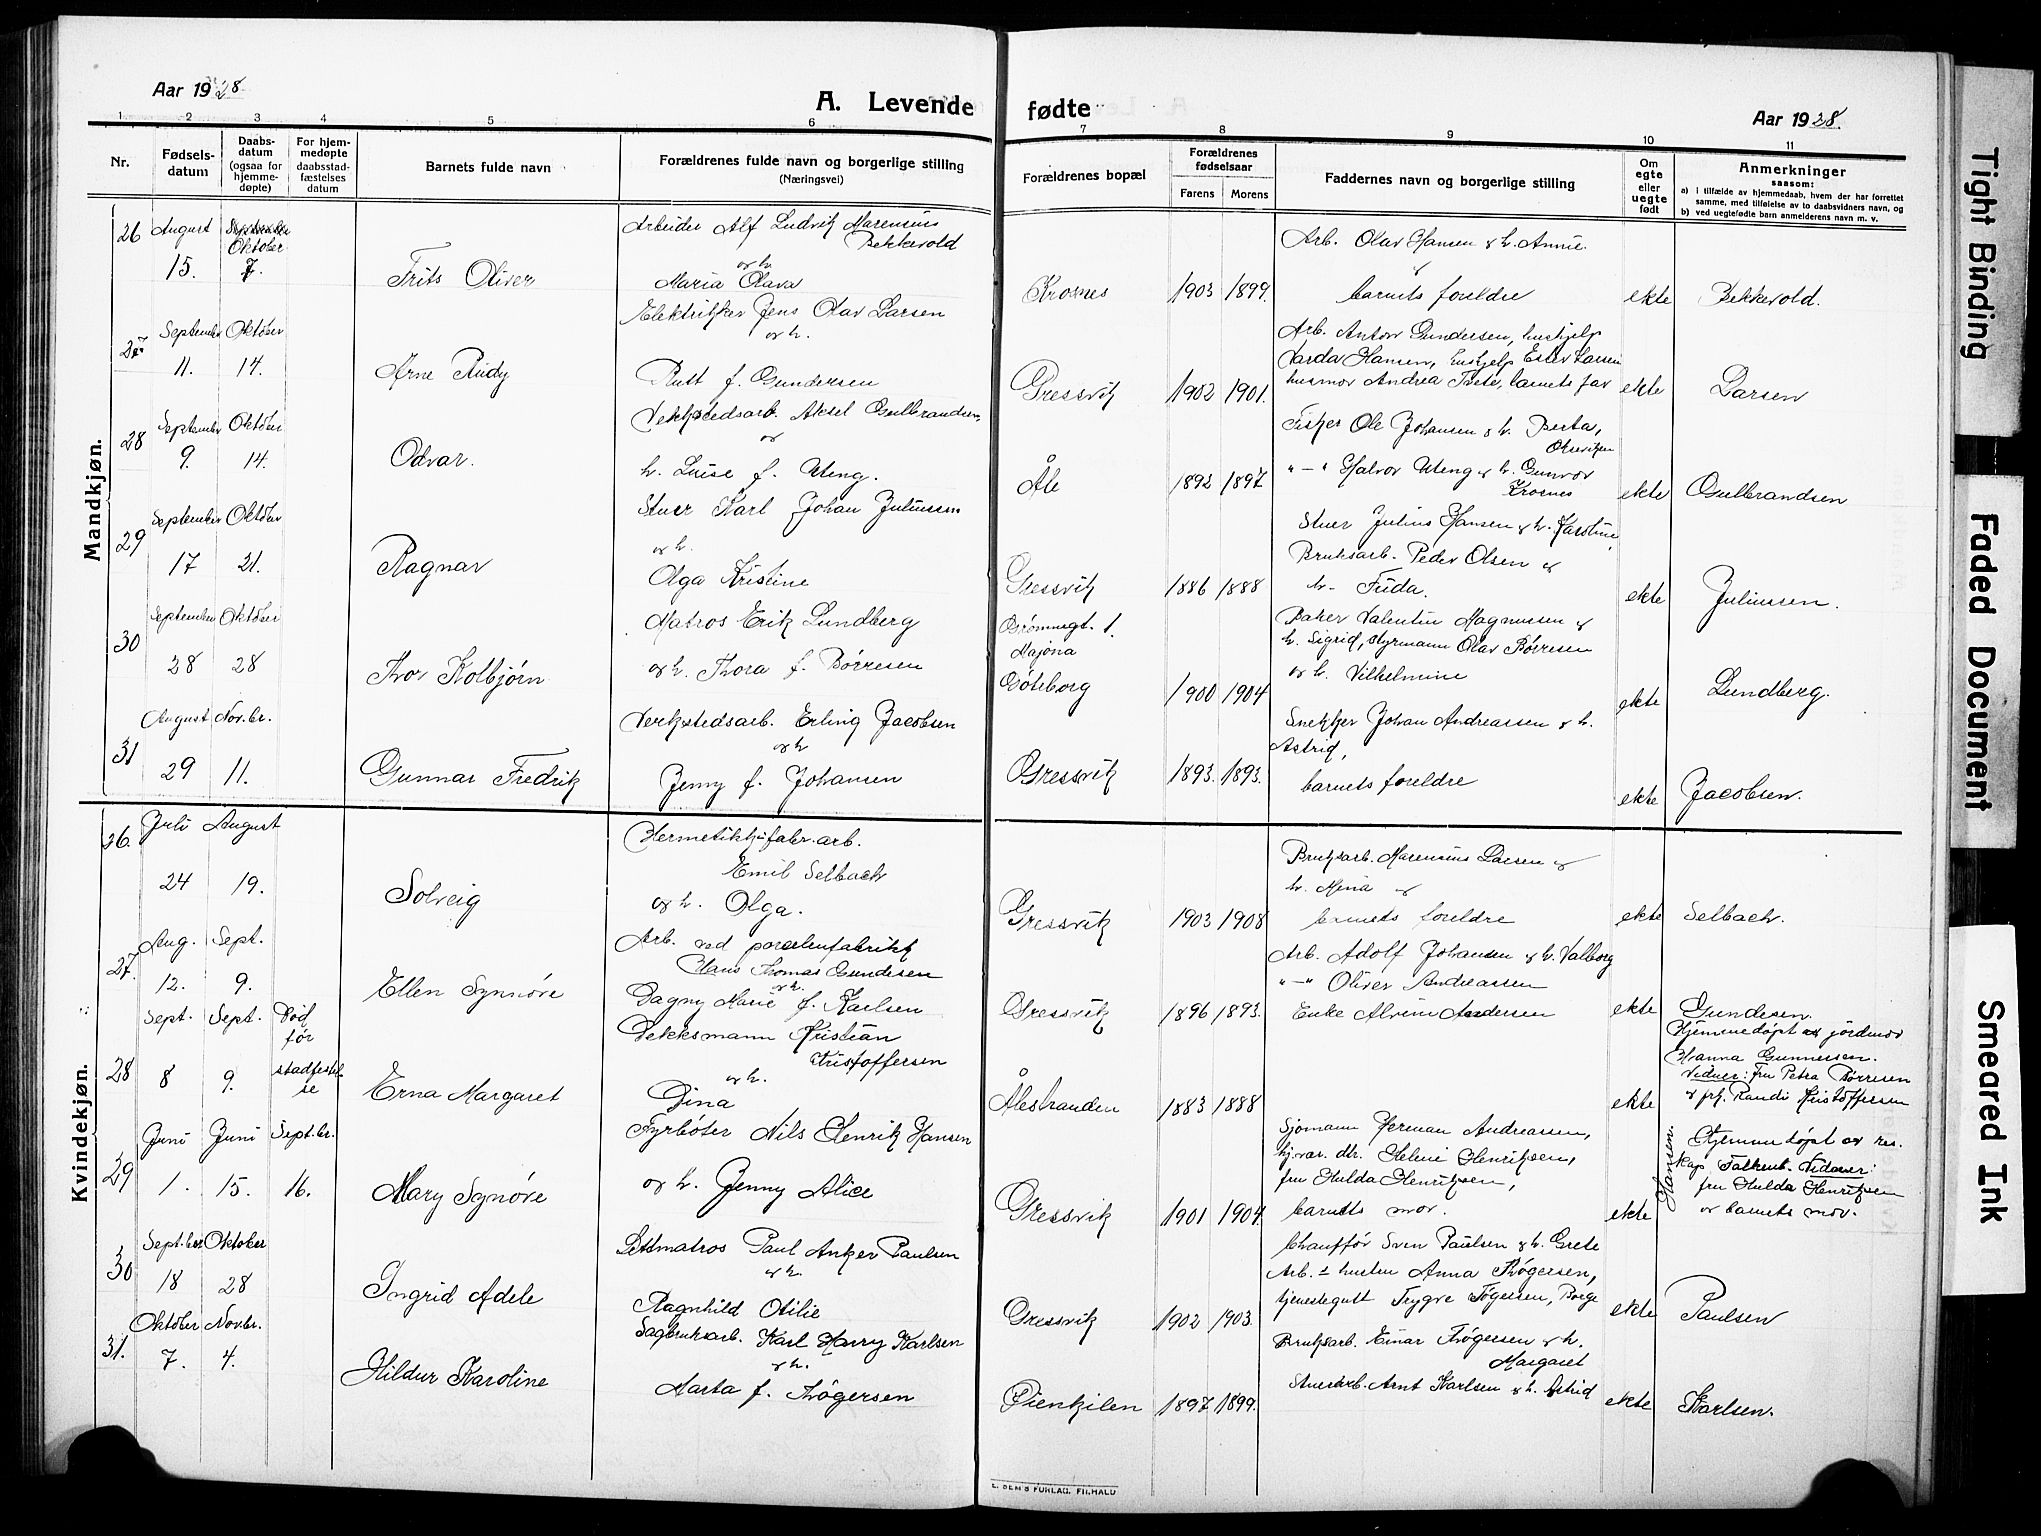 Aar 1928
A. Levende fødte
Aar 1928
1 2 3 4 5 6 7 8 9 10 11
Nr.
Fødsels-
datum
Daabs-
datum
(ogsaa for
hjemme-
døpte)
For hjem-
medøpte
daabsstad-
fæstelses
datum
Barnets fulde navn
Forældrenes fulde navn og borgerlige stilling
(Næringsvei)
Forældrenes bopæl
Forældrenes
fødselsaar
Farens Morens
Faddernes navn og borgerlige stilling
Om
egte
eller
uegte
født
Anmerkninger
saasom:
a) i tilfælde av hjemmedaab, hvem der har forrettet
samme, med tilføielse av to daabsvidners navn, og
b) ved uegtefødte barn anmelderens navn m. v.
Mandkjøn.
26
August
15.
September
Oktober
7.
Frits Oliver
Arbeider Alf Ludvik Marensius
Bekkevold
og h.
Maria Olava
Krosnes
1903 1899.
Arb. Olav Hansen & h. Annie
&
barnets foreldre
ekte
Bekkevold.
27
September
11.
Oktober
14.
Arne Rudy
Elektriker Jens Olav Larsen
og h.
Rutt f. Gundersen
Gressvik
1902 1901.
Arb. Anton Gundersen, hushjelp
Varda Hansen, hushjelp Ester Larsen
husmor Andrea Tete, barnets far
ekte
Larsen
28
September
9.
Oktober
14.
Odvar.
Verkstedsarb. Aksel Gulbrandsen
og
h. Luise f. Uteng.
Åle
1892 1897
Fisker Ole Johansen & h. Berta,
Ørevikn
"-" Halvor Uteng & h. Gunvor
Krosnes
ekte
Gulbrandsen
29
September
17
Oktober
21.
Ragnar
Stuer Karl Johan Juliussen
og h.
Olga Kristine
Gressvik
1886 1888
Stuer Julius Hansen & h. Karoline,
Bruksarb. Peder Olsen &
h. Frida.
ekte
Juliussen.
30
September
28
Oktober
28
Thor Kolbjørn
Matros Erik Lundberg
og h. Thora f. Børresen
Grømmegt. 1.
Majorna
Göteborg
1900 1904
Baker Valentin Magnussen &
h. Sigrid, styrmann Olav Børresen
og h. Vilhelmine
ekte
Lundberg.
31
August
29
Nov.br.
11.
Gunnar Fredrik
Verkstedsarb. Erling Jacobsen
og h
Jenny f. Johansen
Gressvik
1893. 1893.
Snekker Johan Andreassen & h.
Astrid,
barnets foreldre
ekte
Jacobsen.
Kvindekjøn.
26.
Juli
24
August
19.
Solveig
Hermetikkfabr. arb.
Emil Selbach
og h. Olga.
Gressvik
1903 1908
Bruksarb. Marensius Larsen &
h. Mina &
barnets foreldre
ekte
Selbach.
27.
Aug.
12.
Sept.
9.
Ellen Synnøve
Arb. ved porcelenfabrikk
Hans Thomas Gundesen
& h.
Dagny Marie f. Karlsen
Gressvik
1896 1893.
Arb. Adolf Johansen & h. Valborg
"-" Oliver Andreassen
Enke Alvine Andersen
ekte
Gundesen.
28
Sept.
8
Sept.
9.
Død
før
stadfestel-
se
Erna Margaret
Dekksmann Kristian
Kristoffersen
og h.
Dina
Ålestranden
1883 1888
ekte
Hjemmedøpt av jordmor
Hanna Gunnersen.
Vidner: fru Petra Børresen
& frk. Randi Kristoffersen
29
Juni
1.
Juni
15.
Sept.br.
16.
Mary Synøve
Fyrbøter Nils Henrik Hansen
og h. Jenny Alice
Gressvik
1901 1904
Sjømann Herman Andreassen,
hj.vær. dtr. Helene Henriksen,
fru Hulda Henriksen,
barnets mor.
ekte
Hansen.
Hjemmedøpt av res.
kap Falkenb. Vidner:
fru Hulda Henriksen
og barnets mor.
30
Sept.ber
18
Oktober
28
Ingrid Adele
Lettmatros Paul Anker Paulsen
& h.
Ragnhild Otilie
Gressvik
1902 1903.
Chauffør Sven Paulsen & h. Grete
Arb. hustru Anna Thøgersen,
tjenestegutt Trygve Tøgersen, Borge
ekte
Paulsen
31.
Oktober
7.
Nov.br.
4.
Hildur Karoline
Sagbruksarb. Karl Harry Karlsen
& h.
Marta f. Thøgersen
Oienkilen
1897 1899.
Bruksarb. Einar Thøgersen & h.
Margaret
Stuerarb. Arnt Karlsen & h. Astrid
ekte
Karlsen.
E. SEM'S FORLAG, FR.HALD
Tight Binding
Faded Document
Smeared Ink